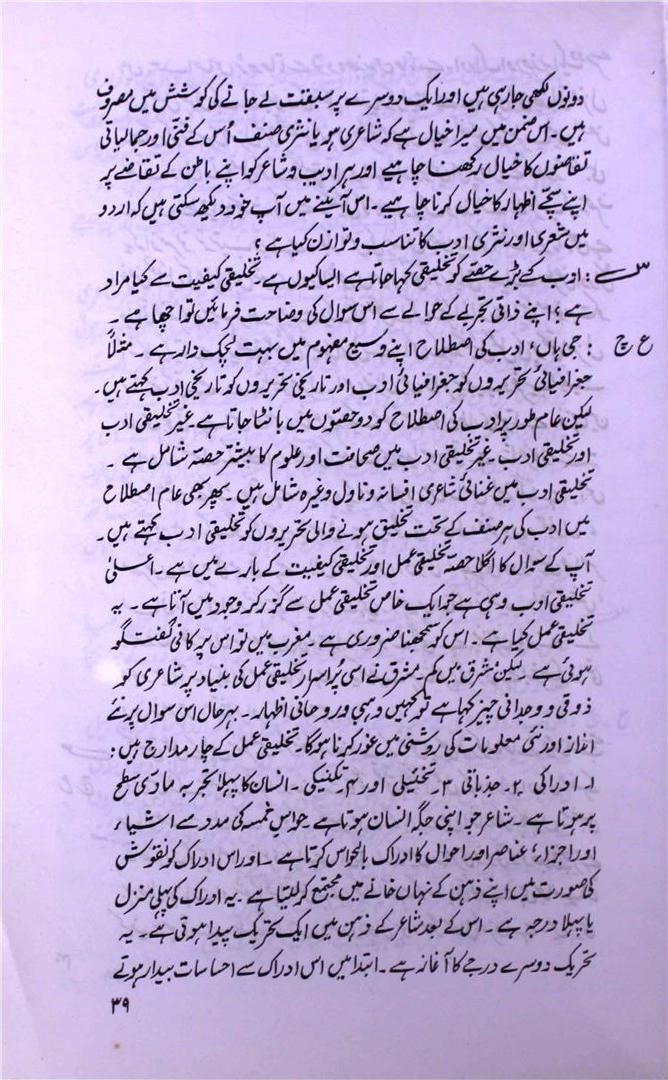 دونوں لکھی جا رہی ہیں اور ایک دوسرے پر سبقت لے جانے کی کوشش میں مصروف
ہیں۔ اس ضمن میں میرا خیال ہے کہ شاعری ہو یا نثری صنف اُس کے فنی اور جمالیاتی
تقاضوں کا خیال رکھنا چاہیے اور ہر ادیب و شاعر کو اپنے باطن کے تقاضے پر
اپنے سچے اظہار کا خیال کرنا چاہیے۔ اس آئینے میں آپ خود دیکھ سکتی ہیں کہ اردو
میں شعری اور نثری ادب کا تناسب و توازن کیا ہے؟
س : ادب کے بڑے حصے کو تخلیقی کہا جاتا ہے ایسا کیوں ہے۔ تخلیقی کیفیت سے کیا مراد
ہے؛ اپنے ذاتی تجربے کے حوالے سے اس سوال کی وضاحت فرمائیں تو اچھا ہے۔
ع چ : جی ہاں، ادب کی اصطلاح اپنے وسیع مفہوم میں بہت لچک دار ہے۔ مثلاً
جغرافیائی تحریروں کو جغرافیائی ادب اور تاریخی تحریروں کو تاریخی ادب کہتے ہیں۔
لیکن عام طور پر ادب کی اصطلاح کو دو حصّوں میں بانٹا جاتا ہے۔ غیر تخلیقی ادب
اور تخلیقی ادب۔ غیر تخلیقی ادب میں صحافت اور علوم کا بیشتر حصّہ شامل ہے۔
تخلیقی ادب میں غنائی شاعری افسانہ و ناول وغیرہ شامل ہیں۔ پھر بھی عام اصطلاح
میں ادب کی ہر صنف کے تحت تخلیق ہونے والی تحریروں کو تخلیقی ادب کہتے ہیں۔
آپ کے سوال کا اگلا حصہ تخلیقی عمل اور تخلیقی کیفیت کے بارے میں ہے۔ اعلیٰ
تخلیقی ادب وہی ہے جو ایک خاص تخلیقی عمل سے گزر کر وجود میں آتا ہے۔ یہ
تخلیقی عمل کیا ہے۔ اس کو سمجھنا ضروری ہے۔ مغرب میں تو اس پر کافی گفتگو
ہوئی ہے۔ لیکن مشرق میں کم۔ مشرق نے اسی پُراسرار تخلیقی عمل کی بنیاد پر شاعری کو
ذوقی و وجدانی چیز کہا ہے تو کہیں وہبی و روحانی اظہار۔ بہرحال اس سوال پر نئے
انداز اور نئی معلومات کی روشنی میں غور کرنا ہوگا۔ تخلیقی عمل کے چار مدارج ہیں:
۱۔ ادراکی ۲۔ جذباتی ۳۔ تخئیلی اور ۴۔ تکنیکی۔ انسان کا پہلا تجربہ مادّی سطح
پر ہوتا ہے۔ شاعر جو اپنی جگہ انسان ہوتا ہے حواسِ خمسہ کی مدد سے اشیاء
اور اجزاء، عناصر اور احوال کا ادراک بالحواس کرتا ہے۔ اور اس ادراک کو نقوش
کی صورت میں اپنے ذہن کے نہاں خانے میں مجتمع کر لیتا ہے۔ یہ ادراک کی پہلی منزل
یا پہلا درجہ ہے۔ اس کے بعد شاعر کے ذہن میں ایک تحریک پیدا ہوتی ہے۔ یہ
تحریک دوسرے درجے کا آغاز ہے۔ ابتدا میں اس ادراک سے احساسات بیدار ہوتے
۳۹